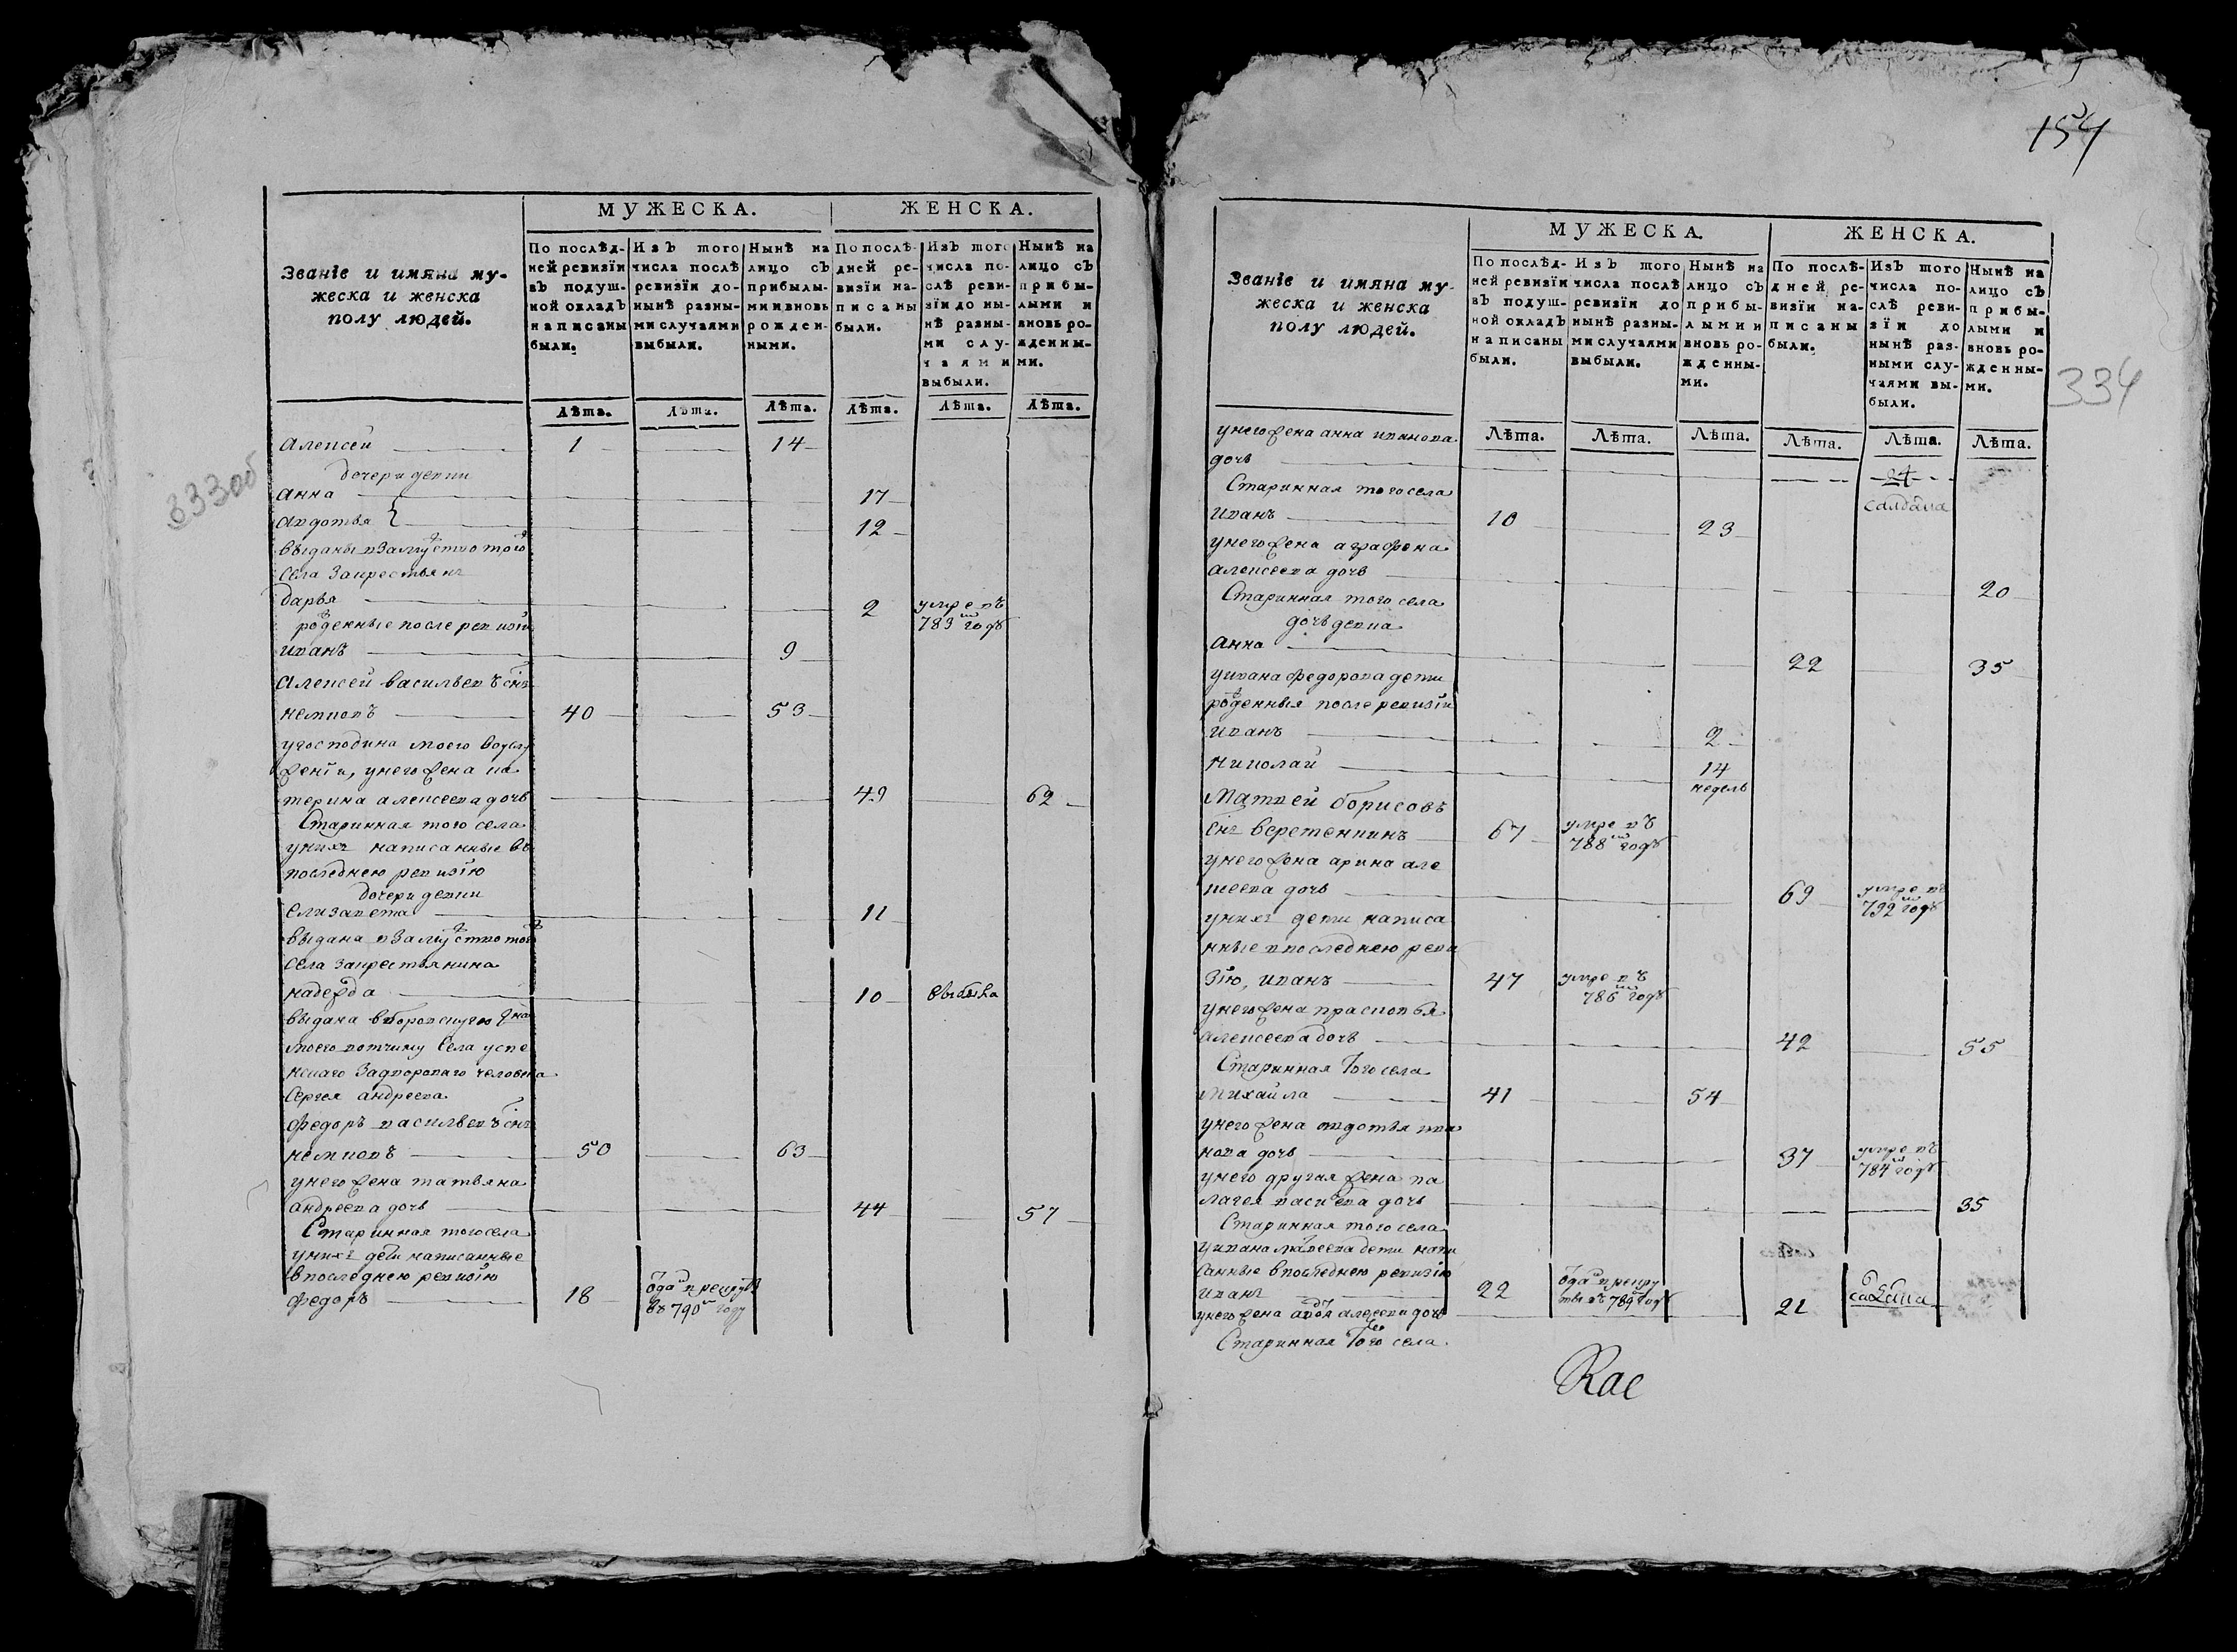 154
334
333об
Званіе и имяна му-
жеска и женска
полу людей.
МУЖЕСКА.
ЖЕНСКА.
По послѣд-
ней ревизіи
въ подуш-
ной окладъ
написаны
были.
Изъ того
числа послѣ
ревизіи до-
нынѣ разны-
ми случаями
выбыли.
Нынѣ на
лицо съ
прибылы-
ми и вновь
рожден-
ными.
По послѣ-
дней ре-
визіи на-
писаны
были.
Изъ того
числа по-
слѣ реви-
зіи до ны-
нѣ разны-
ми слу-
чаями
выбыли.
Нынѣ на
лицо съ
прибы-
лыми и
вновь ро-
жденны-
ми.
Лѣта. Лѣта. Лѣта. Лѣта. Лѣта. Лѣта.
Алексей 1 14
дочери девки
Анна 17
Авдотья 12
выданы взамуство того
села закрестьян
дарья 2 умре въ 783м годъ
рожденные после ревизіи
иванъ 9
Алексей васильевъ снъ
немковъ 40 53
угосподина моего воуслу
женіи, унего жена ка
терина алексеева дочь 49 62
Старинная того села
унихъ написанные въ
последнею ревизію
дочери девки
Елизавета 11
выдана взамуство того
села закрестьянина
надежда 10 выбыла
выдана вборовскую
моего вотчину села успе
нскаго задворнаго человека
Сергея андреева
федоръ васильевъ снъ
немковъ 50 63
унего жена татьяна
андреева дочь 44 57
Старинная того села
унихъ дети написанные
впоследнею ревизію
федоръ 18 отдан врекруты въ 790м году
Званіе и имяна му-
жеска и женска
полу людей.
МУЖЕСКА.
ЖЕНСКА.
По послѣд-
ней ревизіи
въ подуш-
ной окладъ
написаны
были.
Изъ того
числа послѣ
ревизіи до
нынѣ разны-
ми случаями
выбыли.
Нынѣ на
лицо съ
прибы-
лыми и
вновь ро-
жденны-
ми.
По послѣ-
дней ре-
визіи на-
писаны
были.
Изъ того
числа по-
слѣ реви-
зіи до
нынѣ раз-
ными слу-
чаями вы-
были.
Нынѣ на
лицо съ
прибы-
лыми и
вновь ро-
жденны-
ми.
Лѣта. Лѣта. Лѣта. Лѣта. Лѣта. Лѣта.
унего жена анна иванова
дочь 24
Старинная того села
иванъ 10 23
унего жена аграфена
алексеева дочь 20
Старинная того села
дочь девка
Анна 22 35
уивана федорова дети
рожденныя после ревизіи
иванъ 2
николай 14 недель
Матвей борисовъ
снъ веретенкинъ 67 умре въ 788м годъ
унего жена арина але
ксеева дочь 69 умре въ 792м годъ
унихъ дети написа
нные впоследнею реви
зію, иванъ 47 умре въ 786м годъ
унего жена прасковья
алексеева дочь 42 55
Старинная того села
михайла 41 54
унего жена авдотья ива
нова дочь 37 умре въ 784м годъ
унего другая жена па
лагея васильева дочь 35
Старинная того села
уивана матвеева дети напи
санные впоследнею ревизію
иванъ 22 отдан врекруты въ 789м годъ
унего жена авдотья алексеева дочь 21 салдатка
Старинная того села